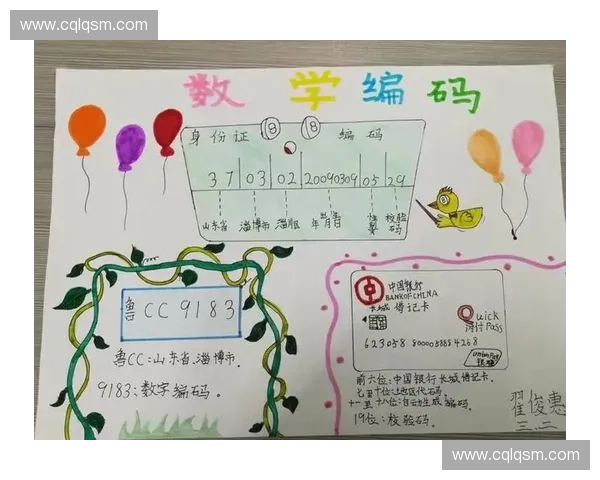 www.cqlqsm.com
www.cqlqsm.com
数 学 编 码
身份证 18 18 编码
37 03 02 20090309 05 29
山东省 淄博市 淄川区 年 出生日 性别 校验码
鲁CC9183
鲁CC:山东省、淄博市.
9183:数字编码.
中国银行
BANK OF CHINA
长城 借记卡
Quick
闪付 Pass
623058 8000058884268
UnionPay
银联
前六位:中国银行长城借记卡.
七至十位:地区代码.
十一至十八位:自云生成编码.
19位:校验码.
翟俊惠
三.二
www.cqlqsm.com
www.cqlqsm.com